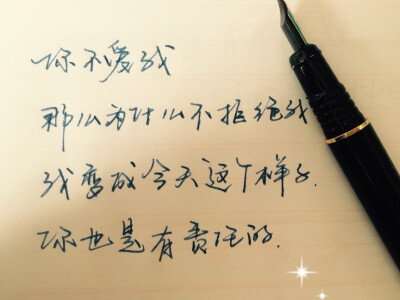 你不爱我
那么为什么不拒绝我
我变成今天这个样子.
你也是有责任的.